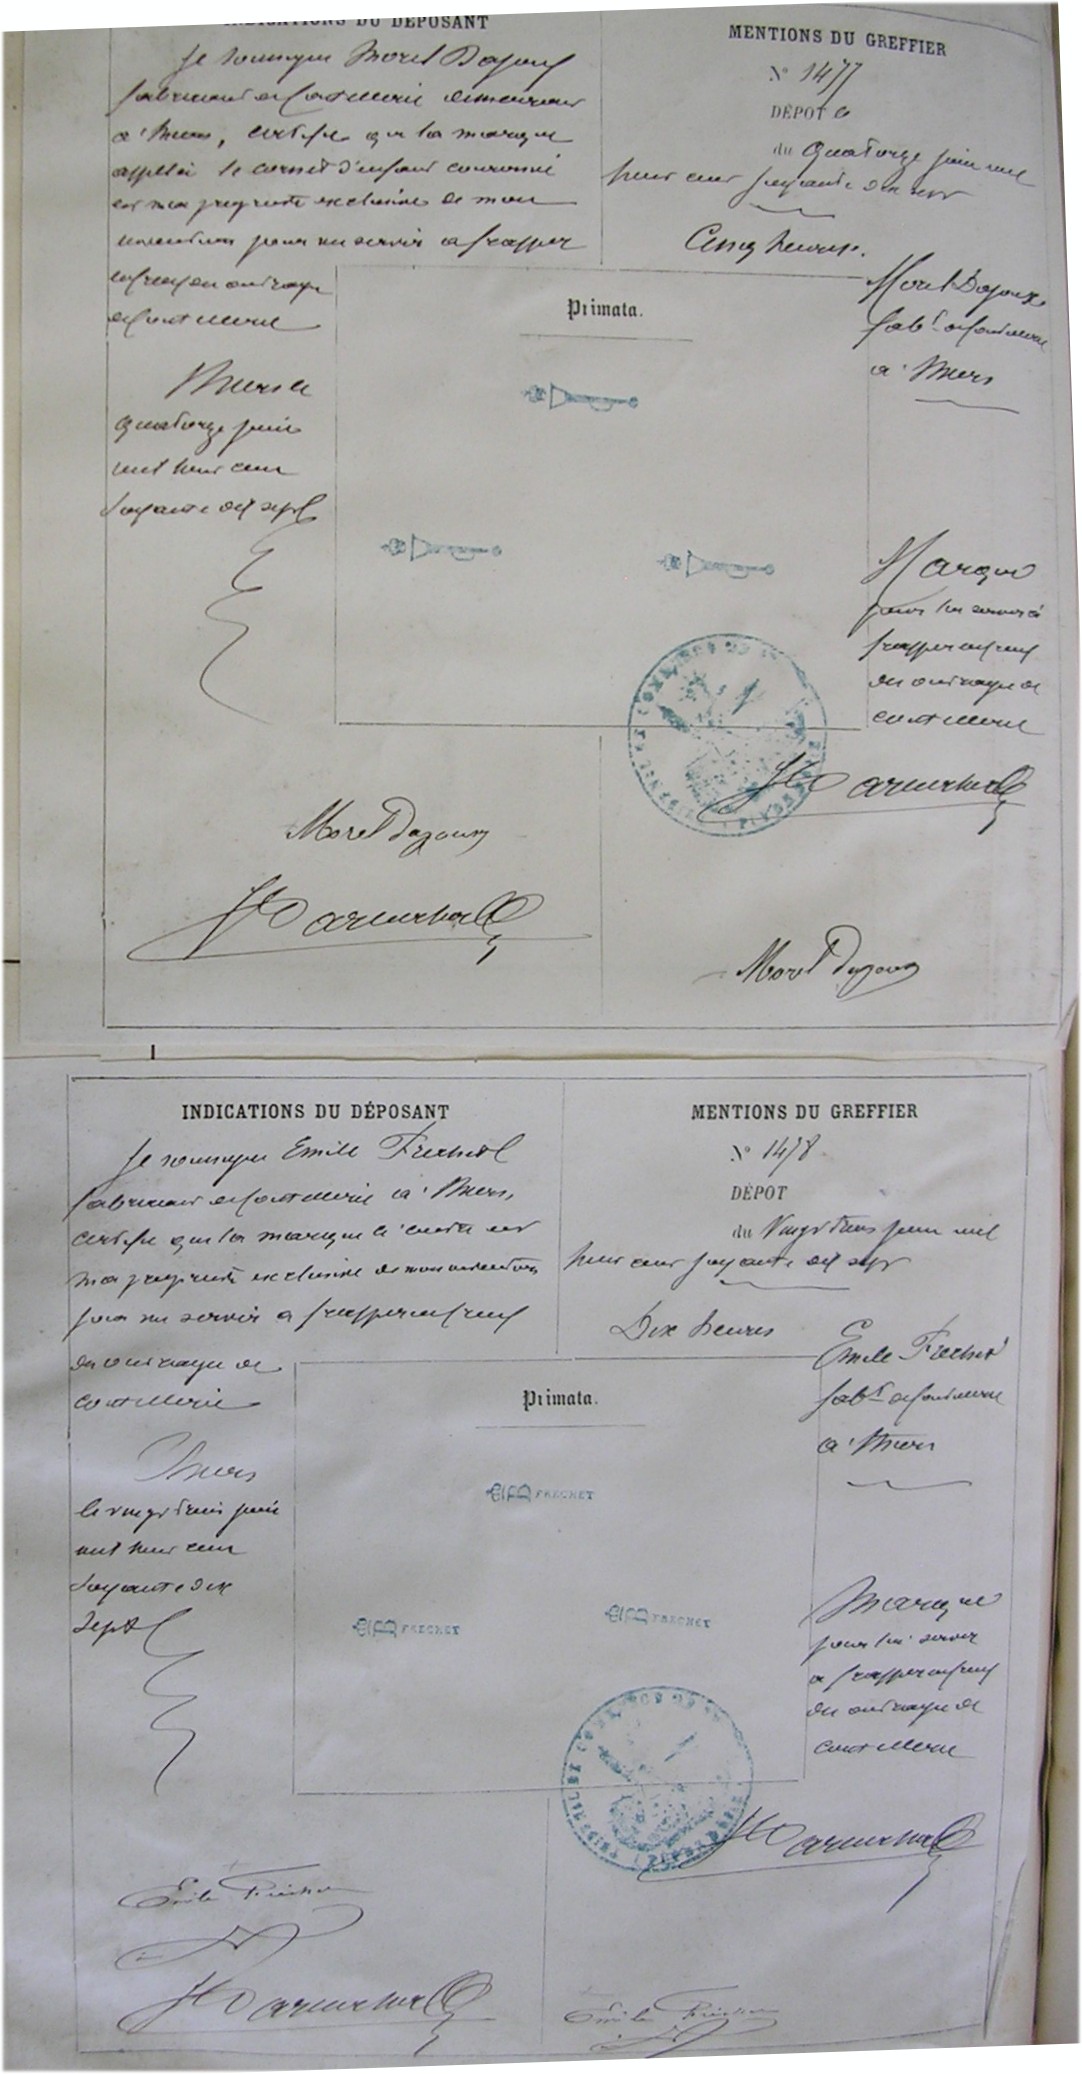 INDICATIONS DU DÉPOSANT
Je soussigné Morel Dajoux
fabricant de Coutellerie demeurant
à Thiers, certifie que la marque
appelée le cornet d'enfant couronné
est ma propriété exclusive de mon
invention pour me servir à frapper
ouvrage
de Coutellerie
Thiers le
quatorze juin
mil huit cent
soixante dix sept
Morel Dajoux
MENTIONS DU GREFFIER
N° 1477
DÉPOT
du quatorze juin mil
huit cent soixante dix sept
Cinq heures.
Primata.
Morel Dajoux
fabt de Coutellerie
à Thiers
Marque
pour lui servir à
frapper
ouvrage de
coutellerie
Morel Dajoux
INDICATIONS DU DÉPOSANT
Je soussigné Emile Frechet
fabricant de Coutellerie à Thiers,
certifie que la marque ci contre est
ma propriété exclusive de mon invention
pour me servir à frapper
ouvrage de
coutellerie
Thiers
le vingt trois juin
mil huit cent
soixante dix
sept
Emile Frechet
MENTIONS DU GREFFIER
N° 1478
DÉPOT
du Vingt trois juin mil
huit cent soixante dix sept
Dix heures
Primata.
FRECHET
FRECHET
FRECHET
Emile Frechet
fabt de Coutellerie
à Thiers
Marque
pour lui servir
à frapper
ouvrage de
coutellerie
Emile Frechet